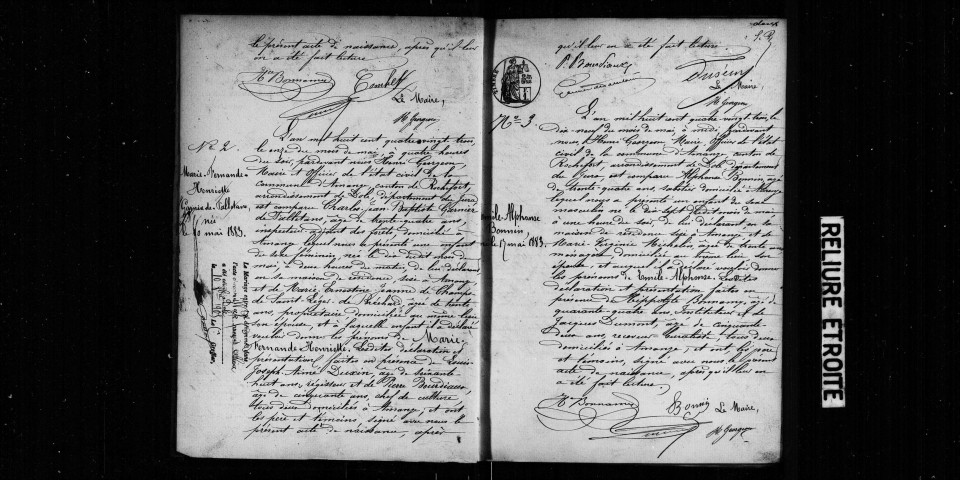 le présent acte de naissance, après qu'il leur
en a été fait lecture
Hte Bonnamy
Le Maire,
H Gorgeon
No 2.
Marie-Fernande-
Henriette
Garnier de Falletans,
née
le 10 mai 1883.
L'an mil huit cent quatre vingt trois,
le onze du mois de mai, à quatre heures
du soir, pardevant nous Henri Gorgeon
Maire et Officier de l'état civil de la
commune d'Amange canton de Rochefort,
arrondissement de Dole, département du Jura
est comparu Charles Jean Baptiste Garnier
de Falletans, âgé de trente quatre ans,
inspecteur adjoint des forêts domicilié à
Amange lequel nous a présenté une enfant
de sexe féminin, née le dix dudit mois de
mai, à deux heures du matin, de lui déclarant
en sa maison de résidence sise à Amange
et de Marie Ernestine Jeanne de Champs
de Saint Léger de Bréchard, âgée de trente
ans, propriétaire domiciliée au même lieu
son épouse, et à laquelle enfant il a déclaré
vouloir donner les prénoms de Marie-
Fernande Henriette. Lesdites déclaration et
présentation faites en présence de Louis
Joseph Aimé âgé de soixante
huit ans, régisseur et de Pierre Bourdiaux,
âgé de cinquante ans, chef de culture
tous deux domiciliés à Amange, et ont
les père et témoins, signé avec nous le
présent acte de naissance, après
qu'il leur en a été fait lecture.
P. Bourdiaux
Le Maire,
H Gorgeon
No 3.
Emile-Alphonse
Bonnin,
le 17 mai 1883.
L'an mil huit cent quatre vingt trois, le
dix neuf du mois de mai à midi, pardevant
nous, Henri Gorgeon Maire, Officier de l'état
civil de la commune d'Amange, canton de
Rochefort, arrondissement de Dole, département
du Jura, est comparu Alphonse Bonnin, âgé
de trente quatre ans, domicilié à Amange
lequel nous a présenté un enfant de sexe
masculin né le dix sept dudit mois de mai
à une heure du soir, de lui déclarant en sa
maison de résidence sise à Amange et de
Marie Virginie âgée de trente ans
ménagère, domiciliée au même lieu son
épouse, et auquel il a déclaré vouloir donner
les prénoms de Emile-Alphonse. Lesdites
déclaration et présentation faites en
présence de Hippolyte Bonnamy, âgé de
quarante quatre ans, Instituteur et de
Jacques Dumont, âgé de cinquante
ans, receveur buraliste, tous deux
domiciliés à Amange, et ont, les père
et témoins, signé avec nous le présent
acte de naissance, après qu'il leur en
a été fait lecture.
Hte Bonnamy
Bonnin
Le Maire,
H Gorgeon
RELIURE ÉTROITE